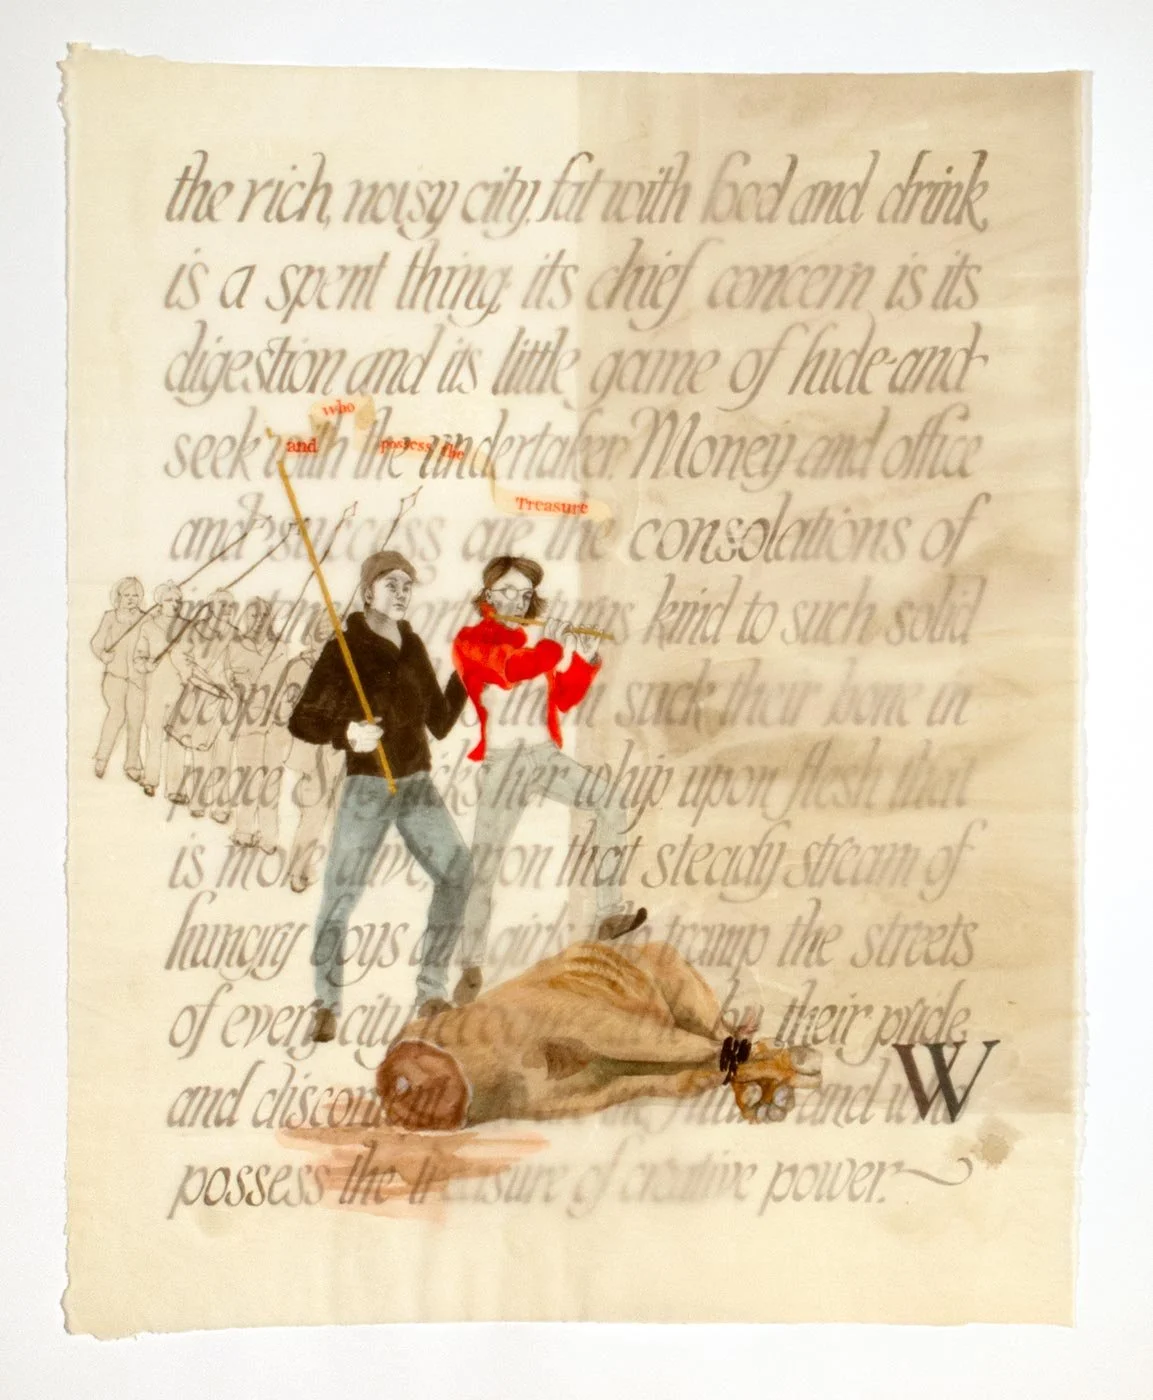 the rich, noisy city, fat with food and drink,
is a spent thing; its chief concern is its
digestion and its little game of hide-and-
seek with the undertaker. Money and office
and
who
possess the
Treasure
and success are the consolations of
turns kind to such solid
people them suck their bone in
peace. her whip upon flesh that
is more alive, upon that steady stream of
hungry boys and girls who tramp the streets
of every city by their pride
and discontent and who
W
possess the treasure of creative power.